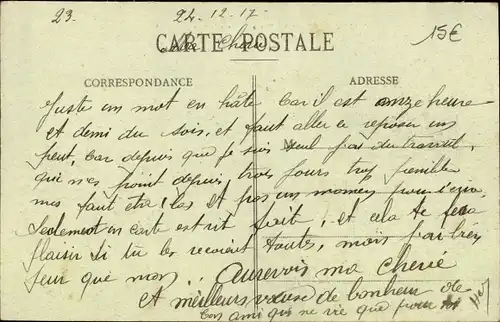 23.
24-12-17
15€
CARTE POSTALE
Ma Chérie
CORRESPONDANCE
ADRESSE
Juste un mot en hâte Car il est onze heure
et demi du soir, et faut aller ce reposer un
peut, Car depuis que je suis seul pas du travail,
qui mes point depuis trois jours trop penible
mes faut etre las et pas un moment pour
Seulement en carte est vit fait, et cela te fera
plaisir si tu les recoient toutes, mais j'ai bien
peur que non... Aurevoir ma cherie
et meilleurs vœux de bonheur de
ton ami qui ne vie que pour toi